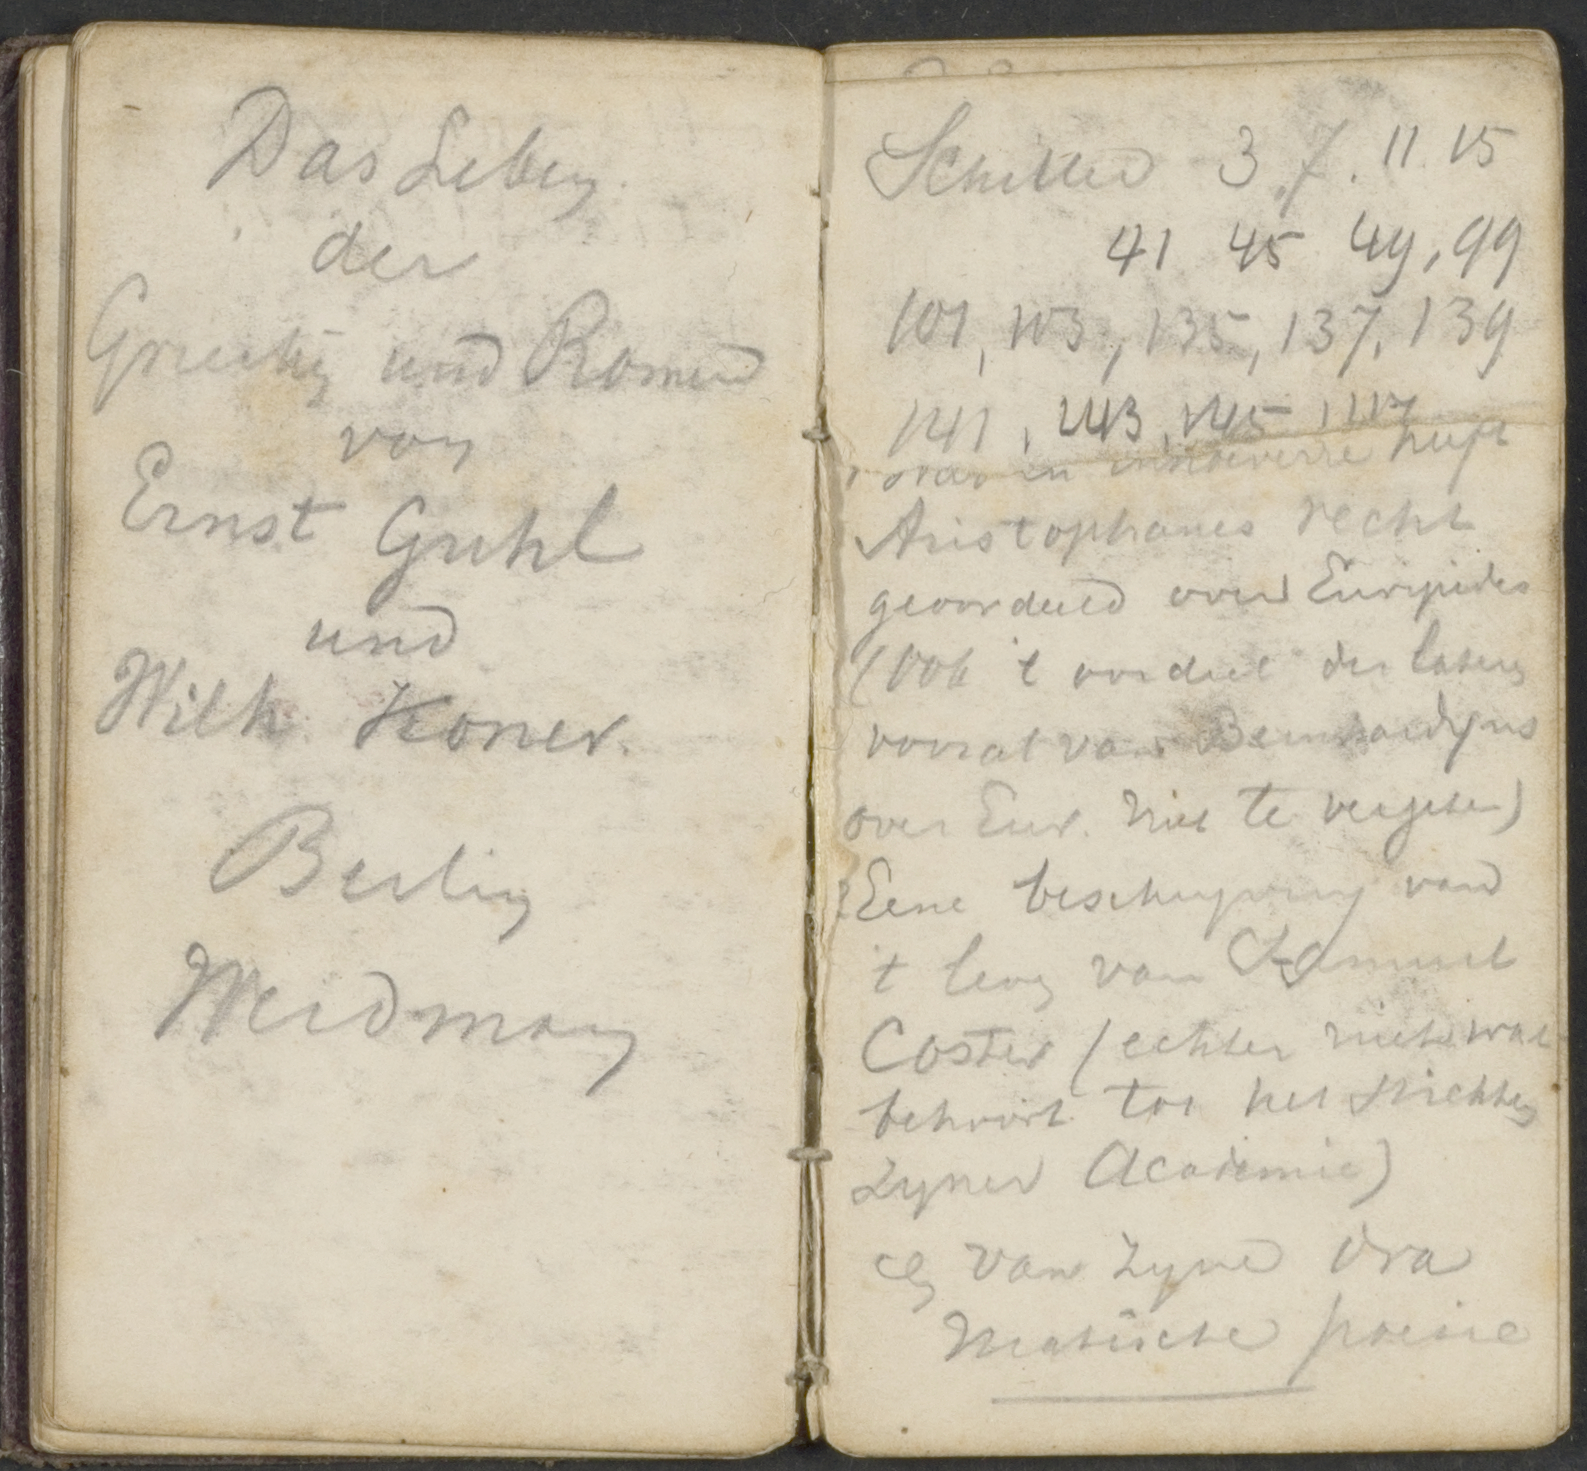 Das Leben
der
Griechen und Romer
von
Ernst Guhl
und
Wilh. Koner.
Berlin
Weidman
Schiller 3. 7. 11. 15
41 45 49, 99
101, 103, 135, 137, 139
141, 143, 145, 147
in hoeverre heeft
Aristophanes recht
geoordeeld over Euripides
(ook 't oordeel der lateren
vooral van Bernhardyns
over Eur. niet te vergeten)
Eene beschryving van
't leven van Samuel
Coster (echter niets wat
behoort tot het stichten
zyner Academie)
en van zyne dra
matische poësie